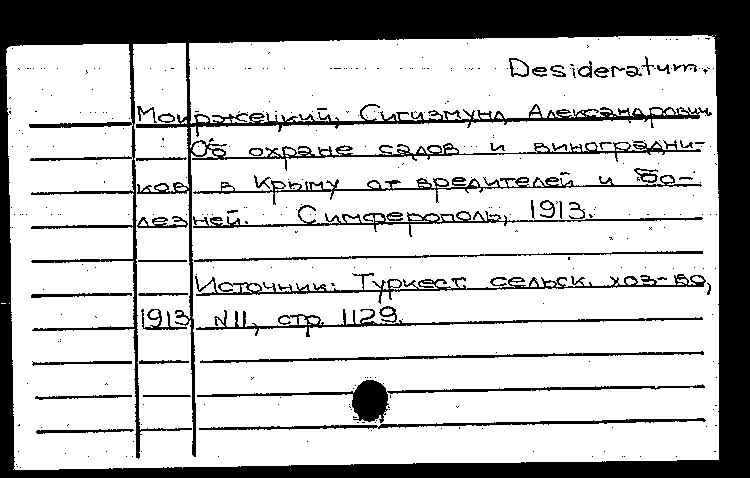 Desideratum.
Мокржецкий, Сигизмунд Александрович
Об охране садов и виноградни-
ков в Крыму от вредителей и бо-
лезней. Симферополь, 1913.
Источник: Туркест. сельск. хоз-во,
1913 N11, стр. 1129.